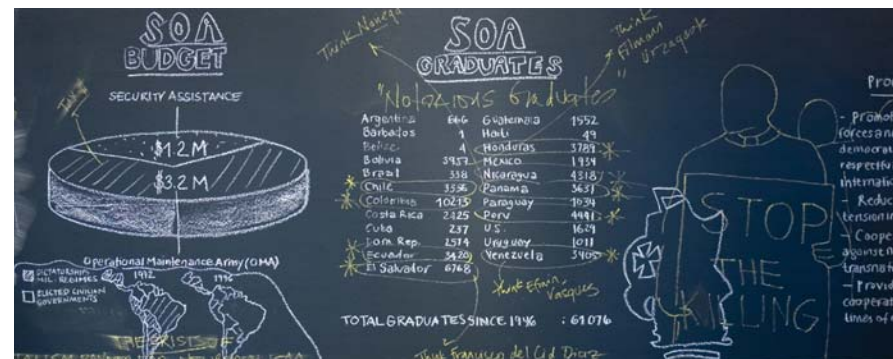 SOA
BUDGET
SECURITY ASSISTANCE
$1.2 M
$3.2 M
Operational Maintenance Army (OMA)
DICTATORSHIPS
MIL. REGIMES
ELECTED CIVILIAN
GOVERNMENTS
1992
1996
THE CRISIS OF
Think Noriega
SOA
GRADUATES
"Notorious Graduates"
Think
Filmann
Urzagaste
Argentina 666 Guatemala 1552
Barbados 1 Haiti 49
Belize 4 Honduras 3789
Bolivia 3957 Mexico 1934
Brazil 338 Nicaragua 4318
Chile 3556 Panama 3631
Colombia 10213 Paraguay 1034
Costa Rica 2425 Peru 4441
Cuba 237 U.S. 1629
Dom Rep. 2574 Uruguay 1011
Ecuador 3420 Venezuela 3405
El Salvador 6768
Think Efrain
Vasques
TOTAL GRADUATES SINCE 1946 : 61076
Think Francisco del Cid Diaz
STOP
THE
KILLING
forces a
democrat
respectfu
internati
- Reduc
tension
- Coope
against n
transnat
- Provid
cooperat
times of